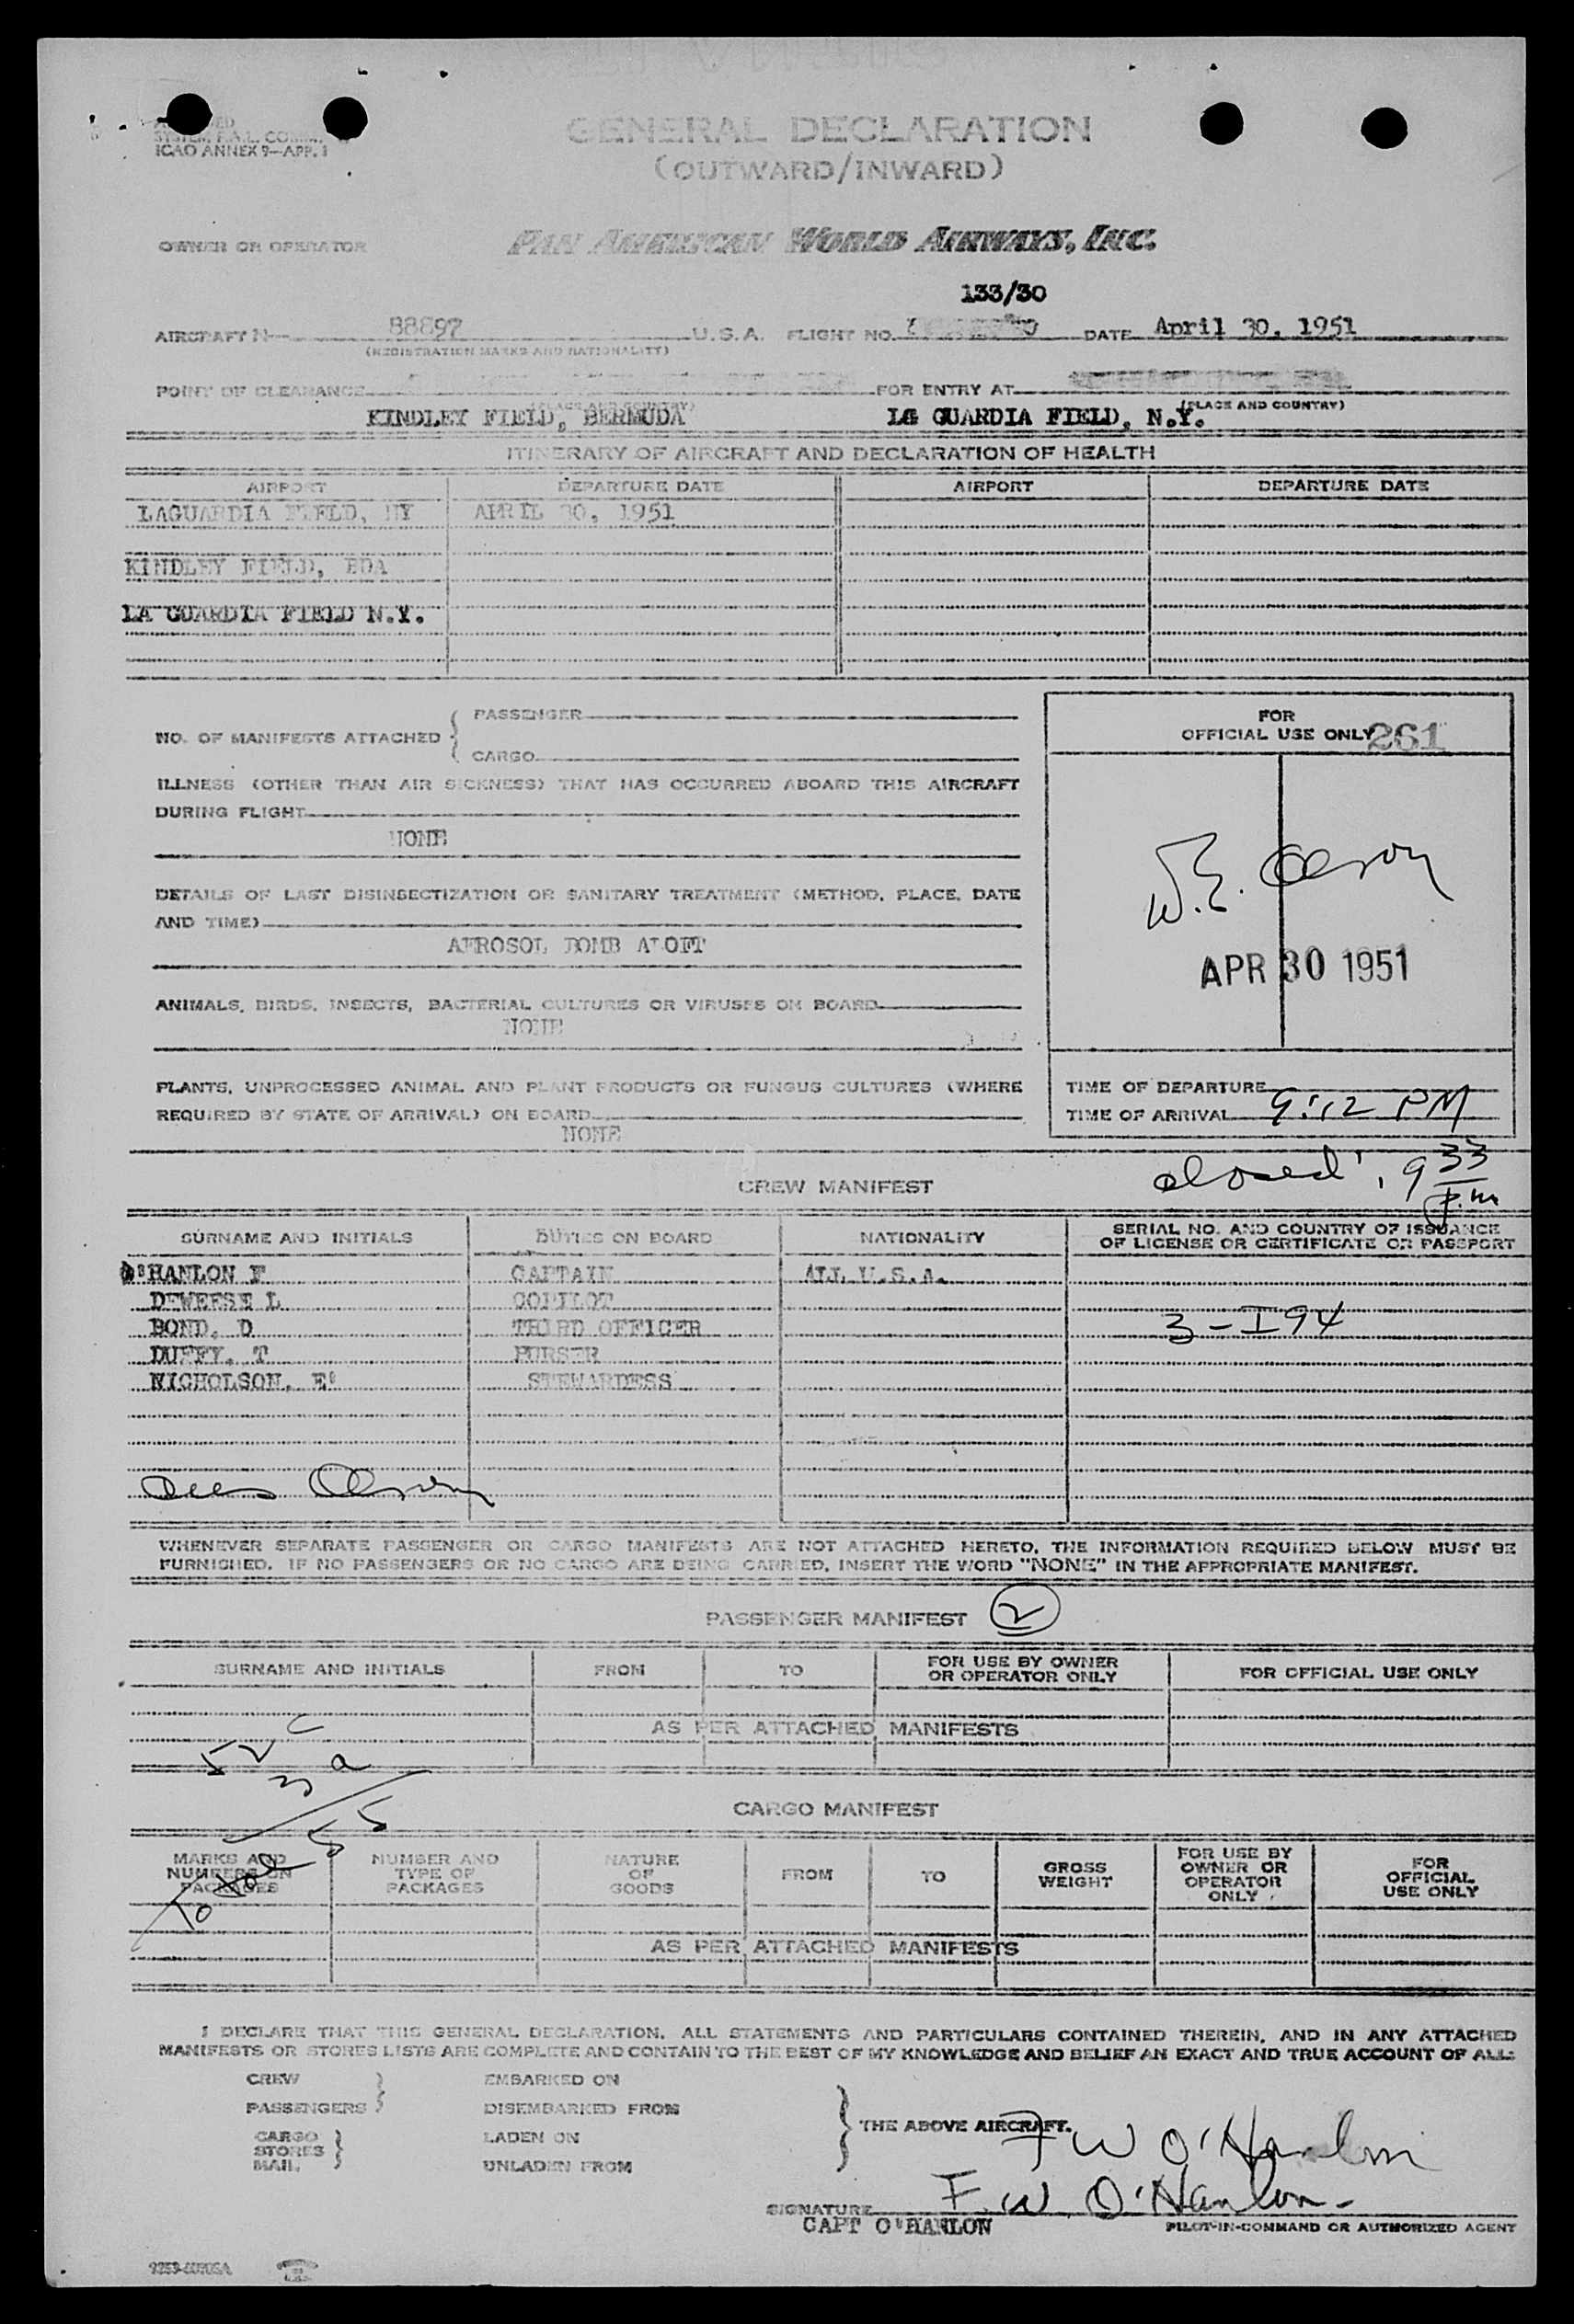 ICAO ANNEX 9—APP. 1
GENERAL DECLARATION
(OUTWARD/INWARD)
OWNER OR OPERATOR PAN AMERICAN WORLD AIRWAYS, INC.
133/30
AIRCRAFT N— 88897 U.S.A. FLIGHT NO. DATE April 30, 1951
(REGISTRATION MARKS AND NATIONALITY)
POINT OF CLEARANCE FOR ENTRY AT
(PLACE AND COUNTRY) (PLACE AND COUNTRY)
KINDLEY FIELD, BERMUDA LG GUARDIA FIELD, N.Y.
ITINERARY OF AIRCRAFT AND DECLARATION OF HEALTH
AIRPORT DEPARTURE DATE AIRPORT DEPARTURE DATE
LAGUARDIA FIELD, NY APRIL 30, 1951
KINDLEY FIELD, BDA
LA GUARDIA FIELD N.Y.
NO. OF MANIFESTS ATTACHED { PASSENGER
CARGO
FOR
OFFICIAL USE ONLY 261
ILLNESS (OTHER THAN AIR SICKNESS) THAT HAS OCCURRED ABOARD THIS AIRCRAFT
DURING FLIGHT
NONE
DETAILS OF LAST DISINSECTIZATION OR SANITARY TREATMENT (METHOD, PLACE, DATE
AND TIME)
AEROSOL BOMB ALOFT
W.E. Olson
APR 30 1951
ANIMALS, BIRDS, INSECTS, BACTERIAL CULTURES OR VIRUSES ON BOARD
NONE
PLANTS, UNPROCESSED ANIMAL AND PLANT PRODUCTS OR FUNGUS CULTURES (WHERE
REQUIRED BY STATE OF ARRIVAL) ON BOARD
NONE
TIME OF DEPARTURE
TIME OF ARRIVAL 9:12 PM
closed, 9 33 p.m
CREW MANIFEST
SURNAME AND INITIALS DUTIES ON BOARD NATIONALITY SERIAL NO. AND COUNTRY OF ISSUANCE
OF LICENSE OR CERTIFICATE OR PASSPORT
O'HANLON F CAPTAIN ALL U.S.A.
DEWEESE L COPILOT
BOND, D THIRD OFFICER 3-I94
DUFFY, T PURSER
NICHOLSON, E' STEWARDESS
Olson
WHENEVER SEPARATE PASSENGER OR CARGO MANIFESTS ARE NOT ATTACHED HERETO, THE INFORMATION REQUIRED BELOW MUST BE
FURNISHED. IF NO PASSENGERS OR NO CARGO ARE BEING CARRIED, INSERT THE WORD "NONE" IN THE APPROPRIATE MANIFEST.
PASSENGER MANIFEST 2
SURNAME AND INITIALS FROM TO FOR USE BY OWNER
OR OPERATOR ONLY FOR OFFICIAL USE ONLY
AS PER ATTACHED MANIFESTS
52 C
3 a
Total 55
CARGO MANIFEST
MARKS AND
NUMBERS ON
PACKAGES NUMBER AND
TYPE OF
PACKAGES NATURE
OF
GOODS FROM TO GROSS
WEIGHT FOR USE BY
OWNER OR
OPERATOR
ONLY FOR
OFFICIAL
USE ONLY
AS PER ATTACHED MANIFESTS
I DECLARE THAT THIS GENERAL DECLARATION, ALL STATEMENTS AND PARTICULARS CONTAINED THEREIN, AND IN ANY ATTACHED
MANIFESTS OR STORES LISTS ARE COMPLETE AND CONTAIN TO THE BEST OF MY KNOWLEDGE AND BELIEF AN EXACT AND TRUE ACCOUNT OF ALL:
CREW EMBARKED ON
PASSENGERS DISEMBARKED FROM
THE ABOVE AIRCRAFT.
CARGO LADEN ON
STORES
MAIL UNLADEN FROM
F W O'Hanlon
F. W. O'Hanlon
SIGNATURE
CAPT O'HANLON PILOT-IN-COMMAND OR AUTHORIZED AGENT